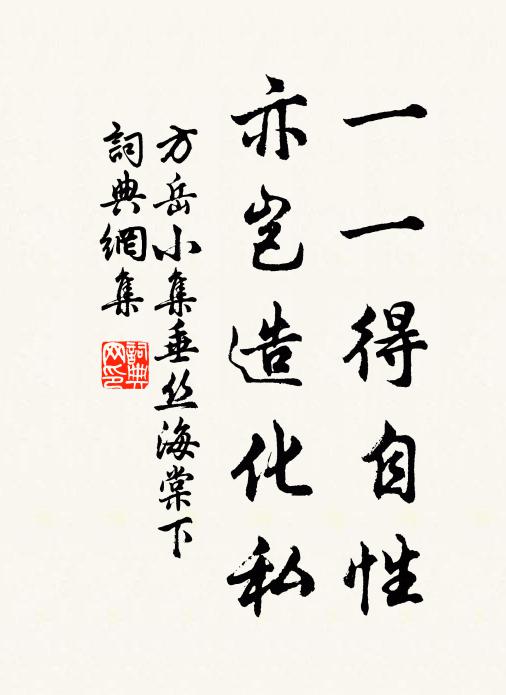 一一得自性
亦豈造化私
方岳小集垂丝海棠下
詞典網集
詞典网印